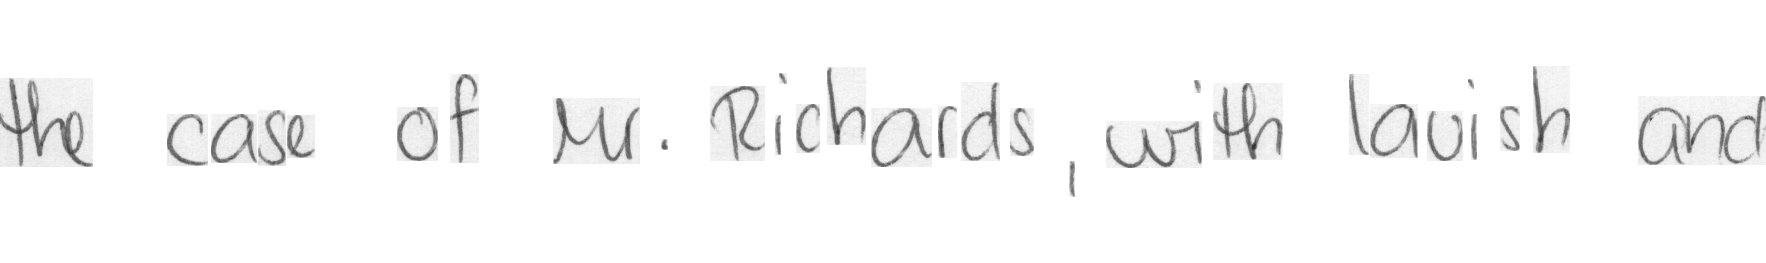 the case of Mr. Richards, with lavish and